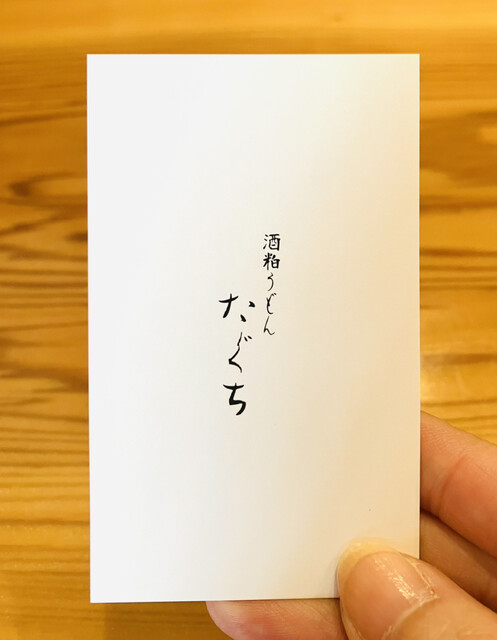 酒粕うどん
たぐち